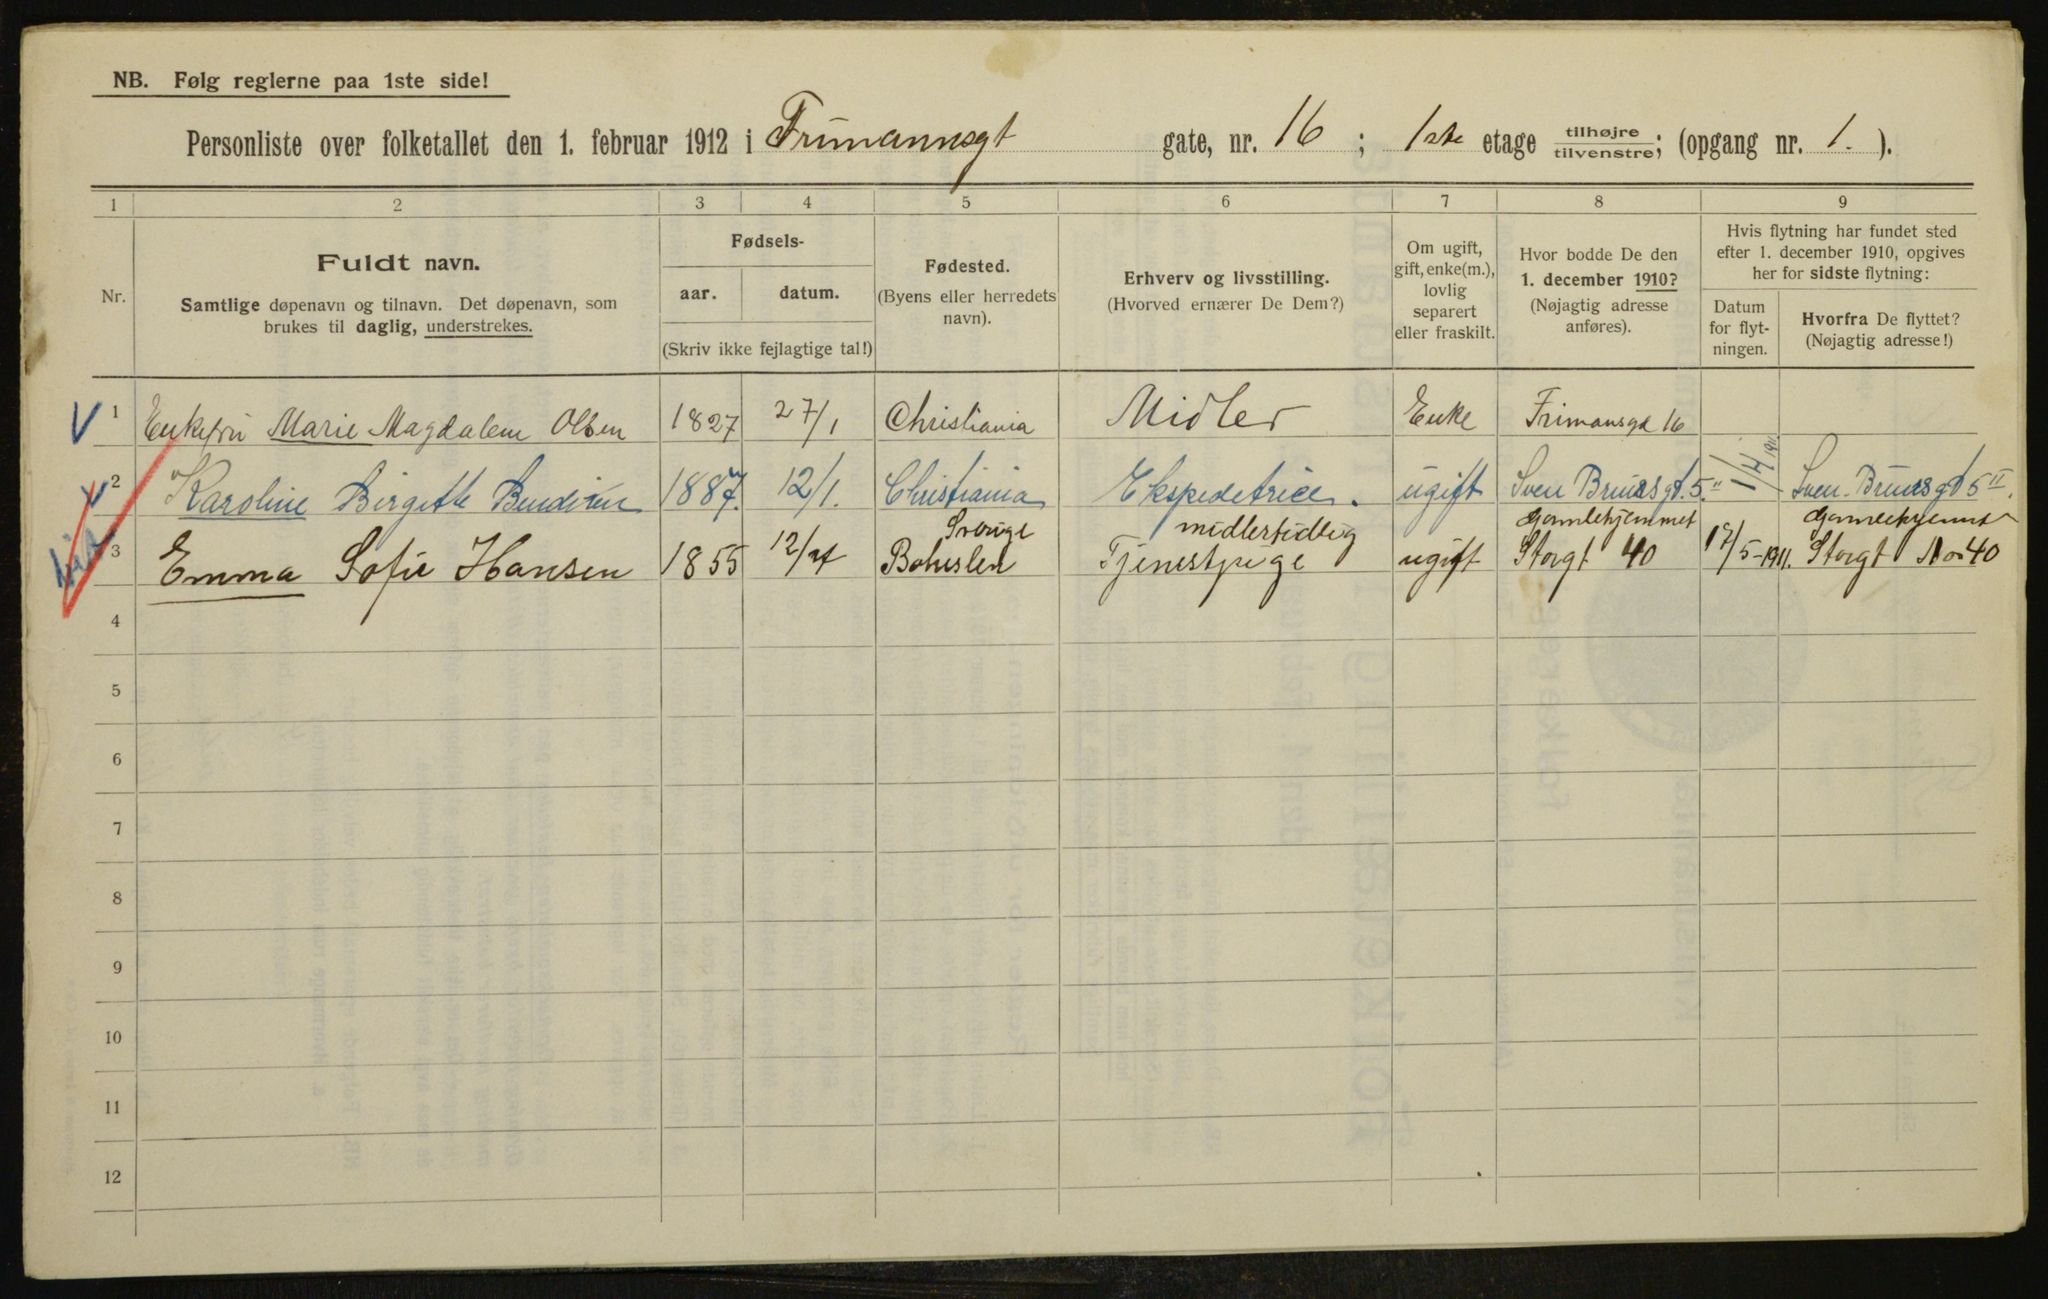 NB. Følg reglerne paa 1ste side!
Personliste over folketallet den 1. februar 1912 i Frimannsgt gate, nr. 16 ; 1ste etage tilhøjre / tilvenstre; (opgang nr. 1. ).
1 2 3 4 5 6 7 8 9
Nr.
Fuldt navn.
Samtlige døpenavn og tilnavn. Det døpenavn, som
brukes til daglig, understrekes.
Fødsels-
aar. datum.
(Skriv ikke fejlagtige tal!)
Fødested.
(Byens eller herredets
navn).
Erhverv og livsstilling.
(Hvorved ernærer De Dem?)
Om ugift,
gift, enke(m.),
lovlig
separert
eller fraskilt.
Hvor bodde De den
1. december 1910?
(Nøjagtig adresse
anføres).
Hvis flytning har fundet sted
efter 1. december 1910, opgives
her for sidste flytning:
Datum
for flyt-
ningen.
Hvorfra De flyttet?
(Nøjagtig adresse!)
1 Enkefru Marie Magdalene Olsen 1827 27/1 Christiania Midler Enke Frimansgd 16
2 Karoline Birgitte 1887. 12/1. Christiania Ekspeditrice. ugift Sven Bruusgt. 5." 1/4 1911 Sven Bruusgt 5 II.
Sverige midlertidlig Gamlehjemmet Gamlehjemmet
3 Emma Sofie Hansen 1855 12/ Bohuslen Tjenestpige ugift Storgt 40 /5-1911. Storgt No 40
4
5
6
7
8
9
10
11
12